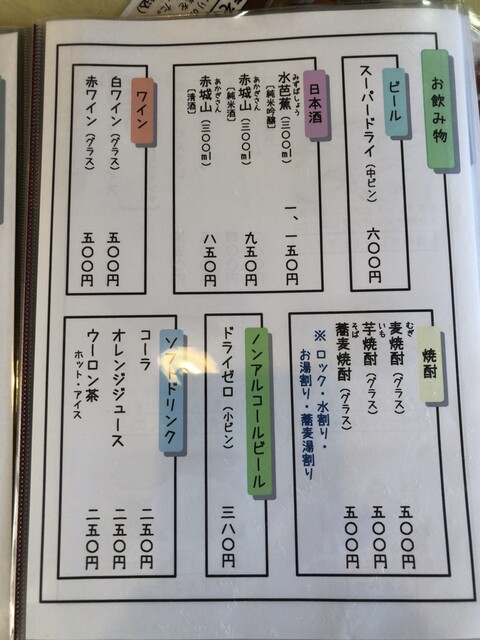 お飲み物
ビール
スーパードライ（中ビン） 六〇〇円
日本酒
水芭蕉（三〇〇ml） 一、一五〇円
みずばしょう
［純米吟醸］
赤城山（三〇〇ml） 九五〇円
あかぎさん
［純米酒］
赤城山（三〇〇ml） 八五〇円
あかぎさん
［清酒］
ワイン
白ワイン（グラス） 五〇〇円
赤ワイン（グラス） 五〇〇円
焼酎
麦焼酎（グラス） 五〇〇円
むぎ
芋焼酎（グラス） 五〇〇円
いも
蕎麦焼酎（グラス） 五〇〇円
そば
※ロック・水割り・
お湯割り・蕎麦湯割り
ノンアルコールビール
ドライゼロ（小ビン） 三八〇円
ソフトドリンク
コーラ 二五〇円
オレンジジュース 二五〇円
ウーロン茶 二五〇円
ホット・アイス